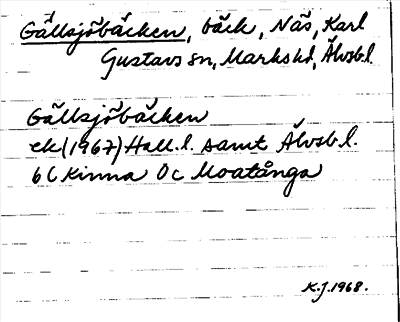 Gällsjöbäcken, bäck, Näs, Karl
Gustavs sn, Markshd, Älvsb.l.
Gällsjöbäcken
ek (1967) Hall.l. samt Älvsb.l.
6 C Kinna 0 c Moatånga
K.J. 1968.